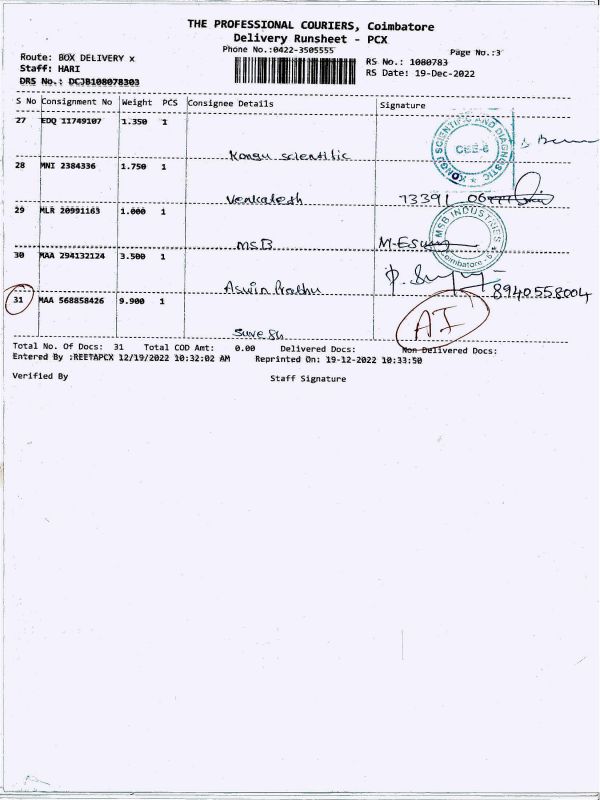 THE PROFESSIONAL COURIERS, Coimbatore
Delivery Runsheet - PCX
Phone No.:0422-3505555
Page No.:3
Route: BOX DELIVERY x
Staff: HARI
DRS No.: DCJB108078303
RS No.: 1080783
RS Date: 19-Dec-2022
S No Consignment No Weight PCS Consignee Details Signature
27 EDQ 11749107 1.350 1
KONGU SCIENTIFIC AND DIAGNOSTIC
CBE-6
Kongu scientific
28 MNI 2384336 1.750 1
Venkatesh 13391 06
29 MLR 20991163 1.000 1
MSB INDUSTRIES
Coimbatore - 6
MSB
30 MAA 294132124 3.500 1
Aswin Prabhu 8940558004
31 MAA 568858426 9.900 1
AI
Suresh
Total No. Of Docs: 31 Total COD Amt: 0.00 Delivered Docs: Non Delivered Docs:
Entered By :REETAPCX 12/19/2022 10:32:02 AM Reprinted On: 19-12-2022 10:33:50
Verified By Staff Signature